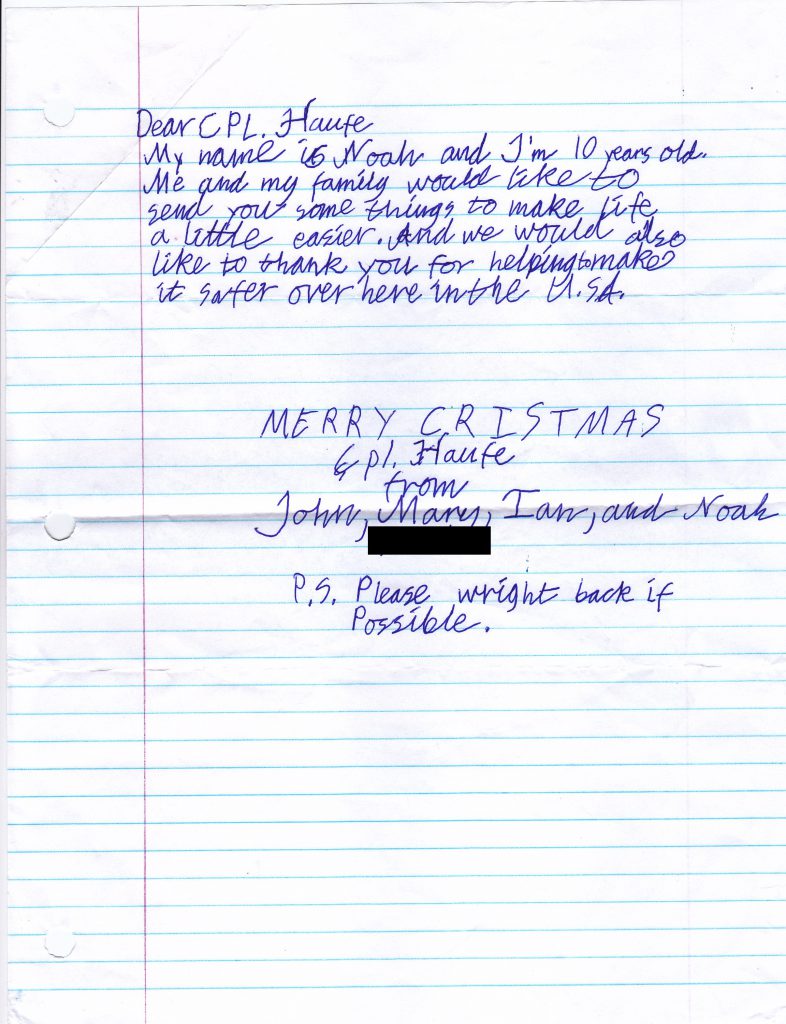 Dear CPL. Haufe
My name is Noah and I'm 10 years old.
Me and my family would like to
send you some things to make life
a little easier. And we would also
like to thank you for helping to make
it safer over here in the U.S.A.
MERRY CRISTMAS
Cpl. Haufe
from
John, Mary, Ian, and Noah
P.S. Please wright back if
Possible.